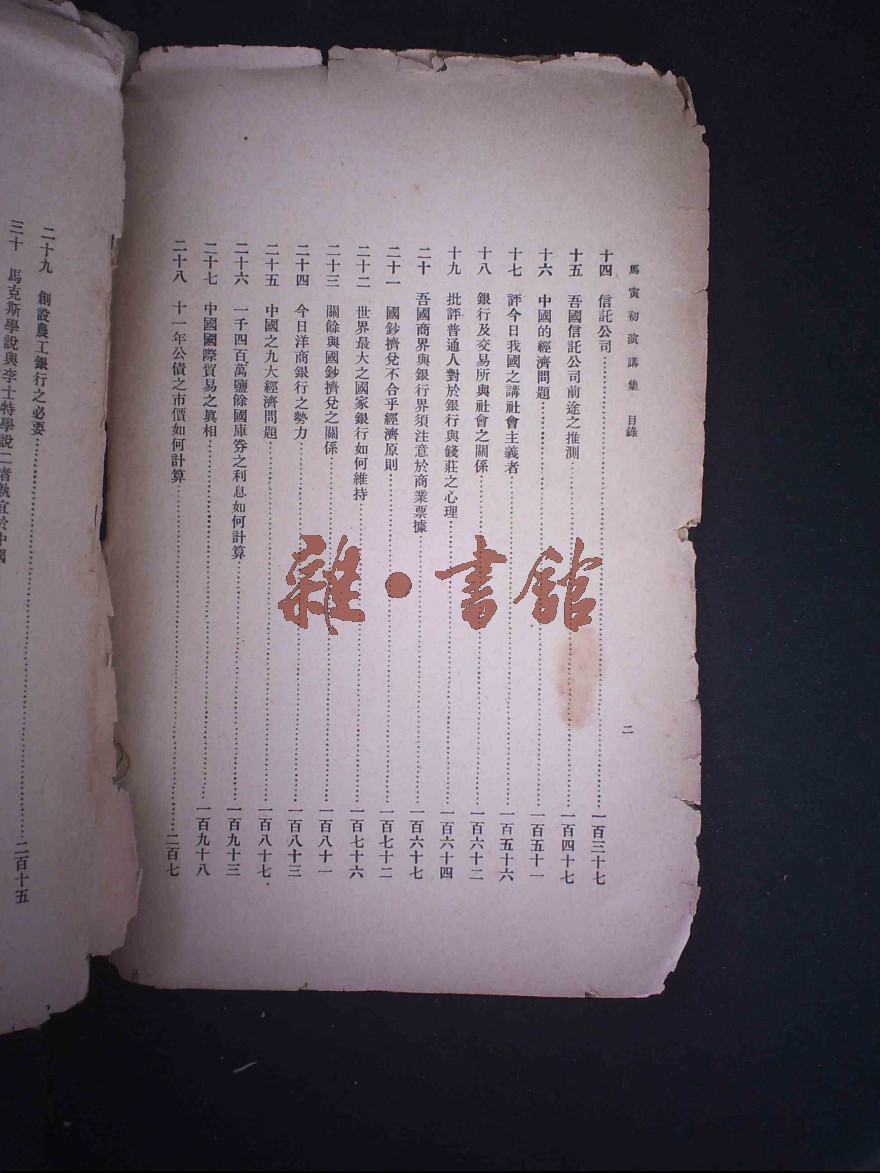 馬寅初演講集 目錄
二
十四 信託公司……一百三十七
十五 吾國信託公司前途之推測……一百四十七
十六 中國的經濟問題……一百五十一
十七 評今日我國之講社會主義者……一百五十六
十八 銀行及交易所與社會之關係……一百六十二
十九 批評普通人對於銀行與錢莊之心理……一百六十四
二十 吾國商界與銀行界須注意於商業票據……一百六十七
二十一 國鈔擠兌不合乎經濟原則……一百七十二
二十二 世界最大之國家銀行如何維持……一百七十六
二十三 關餘與國鈔擠兌之關係……一百八十一
二十四 今日洋商銀行之勢力……一百八十三
二十五 中國之九大經濟問題……一百八十七
二十六 一千四百萬鹽餘國庫券之利息如何計算……一百九十三
二十七 中國國際貿易之真相……一百九十八
二十八 十一年公債之市價如何計算……二百七
二十九 創設農工銀行之必要……二百十五
三十 馬克斯學說與李士特學說二者孰宜於中國
雜·書館